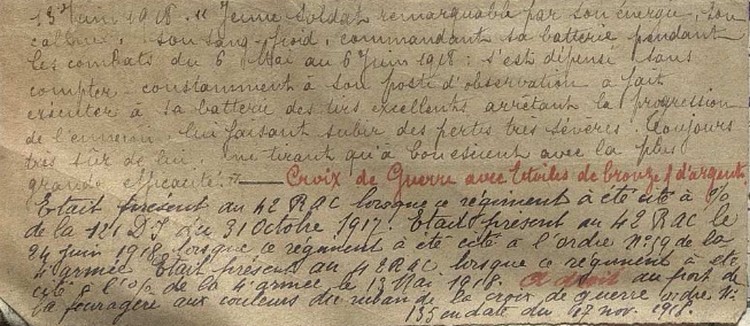 13 Juin 1918. "Jeune soldat remarquable par son énergie, son
calme, son sang-froid, commandant sa batterie pendant
les combats du 6 Mai au 6 Juin 1918 : s'est dépensé sans
compter - constamment à son poste d'observation a fait
exécuter à sa batterie des tirs excellents arrêtant la progression
de l'ennemi, lui faisant subir des pertes très sévères. Toujours
très sûr de lui, ne tirant qu'à bon escient avec la plus
grande efficacité." — Croix de Guerre avec Etoiles de bronze & d'argent
Etait présent au 42 RAC lorsque ce régiment à été cité à l'o/
de la 121 DI du 31 Octobre 1917. Etait présent au 42 RAC le
24 juin 1918 lorsque ce régiment à été cité à l'ordre N° 19 de la
4 armée Etait présent au 42 RAC lorsque ce régiment à été
cité à l'o/o de la 4 armée le 13 Mai 1918. A droit au port de
la fouragère aux couleurs du ruban de la croix de guerre ordre N°
135 en date du 17 nov. 1918.